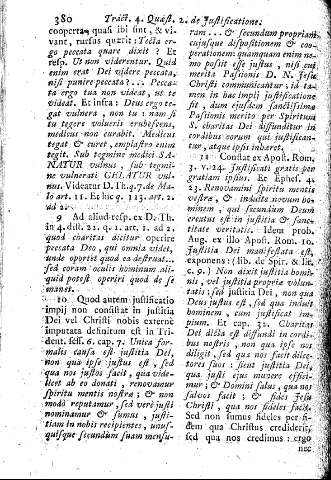 380 Tract. 4. Quæst. 2. de Justificatione.
cooperta quasi ibi sint, & vi-
vant, rursus quærit: Tecta er-
go peccata quare dixit? Et
resp. Ut non viderentur. Quid
enim erat Dei videre peccata,
nisi punire peccata? ... Pecca-
ta ergo tua non videat, ut te
videat. Et infra: Deus ergo te-
gat vulnera, non tu: nam si
tu tegere volueris erubescens,
medicus non curabit. Medicus
tegat & curet, emplastro enim
tegit. Sub tegmine medici SA-
NATUR vulnus, sub tegmi-
ne vulnerati CELATUR vul-
nus. Videatur D. Th. q. 7. de Ma-
lo art. 11. & hic q. 113. art. 2.
ad 2.
9 Ad aliud resp. ex D. Th.
in 4. dist. 22. q. 1. art. 1. ad 2.
quod charitas dicitur operire
peccata Deo, qui omnia videt,
unde oportet quod ea destruat...
sed coram oculis hominum ali-
quid potest operiri quod de se
manet.
10 Quod autem justificatio
impij non consistat in justitia
Dei vel Christi nobis externè
imputata definitum est in Tri-
dent. sess. 6. cap. 7. Unica for-
malis causa est justitia Dei,
non qua ipse justus est, sed
qua nos justos facit, qua vide-
licet ab eo donati, renovamur
spiritu mentis nostræ; & non
modò reputamur, sed verè justi
nominamur & sumus, justi-
tiam in nobis recipientes, unus-
quisque secundum suam mensu-
ram ... & secundum propriam
cujusque dispositionem & coo-
perationem, quamquam enim ne-
mo possit esse justus, nisi cui
merita Passionis D. N. Jesu
Christi communicantur, id ta-
men in hac impij justificatione
fit dum ejusdem sanctissimæ
Passionis merito per Spiritum
S. charitas Dei diffunditur in
cordibus eorum qui justifican-
tur, atque ipsis inhæret.
11 Constat ex Apost. Rom.
3. v. 24. Justificati gratis per
gratiam ipsius. Et Ephes. 4.
23. Renovamini spiritu mentis
vestræ, & induite novum ho-
minem, qui secundum Deum
creatus est in justitia & sanc-
titate veritatis. Idem prob.
Aug. ex illo Apost. Rom. 10.
Justitia Dei manifestata est,
exponens: (lib. de Spir. & lit.
c. 9.) Non dixit justitia homi-
nis, vel justitia propriæ volun-
tatis; sed justitia Dei, non qua
Deus justus est, sed qua induit
hominem, cum justificat im-
pium. Et cap. 32. Charitas
Dei dicta est diffundi in cordi-
bus nostris, non qua ipse nos
diligit, sed qua nos facit dilec-
tores suos: sicut justitia Dei,
qua justi ejus munere effici-
mur; & Domini salus, qua nos
salvos facit; & fides Jesu
Christi, qua nos fideles facit.
Sed non sumus fideles per fi-
dem qua Christus crediderit,
sed qua nos credimus: ergo
nec